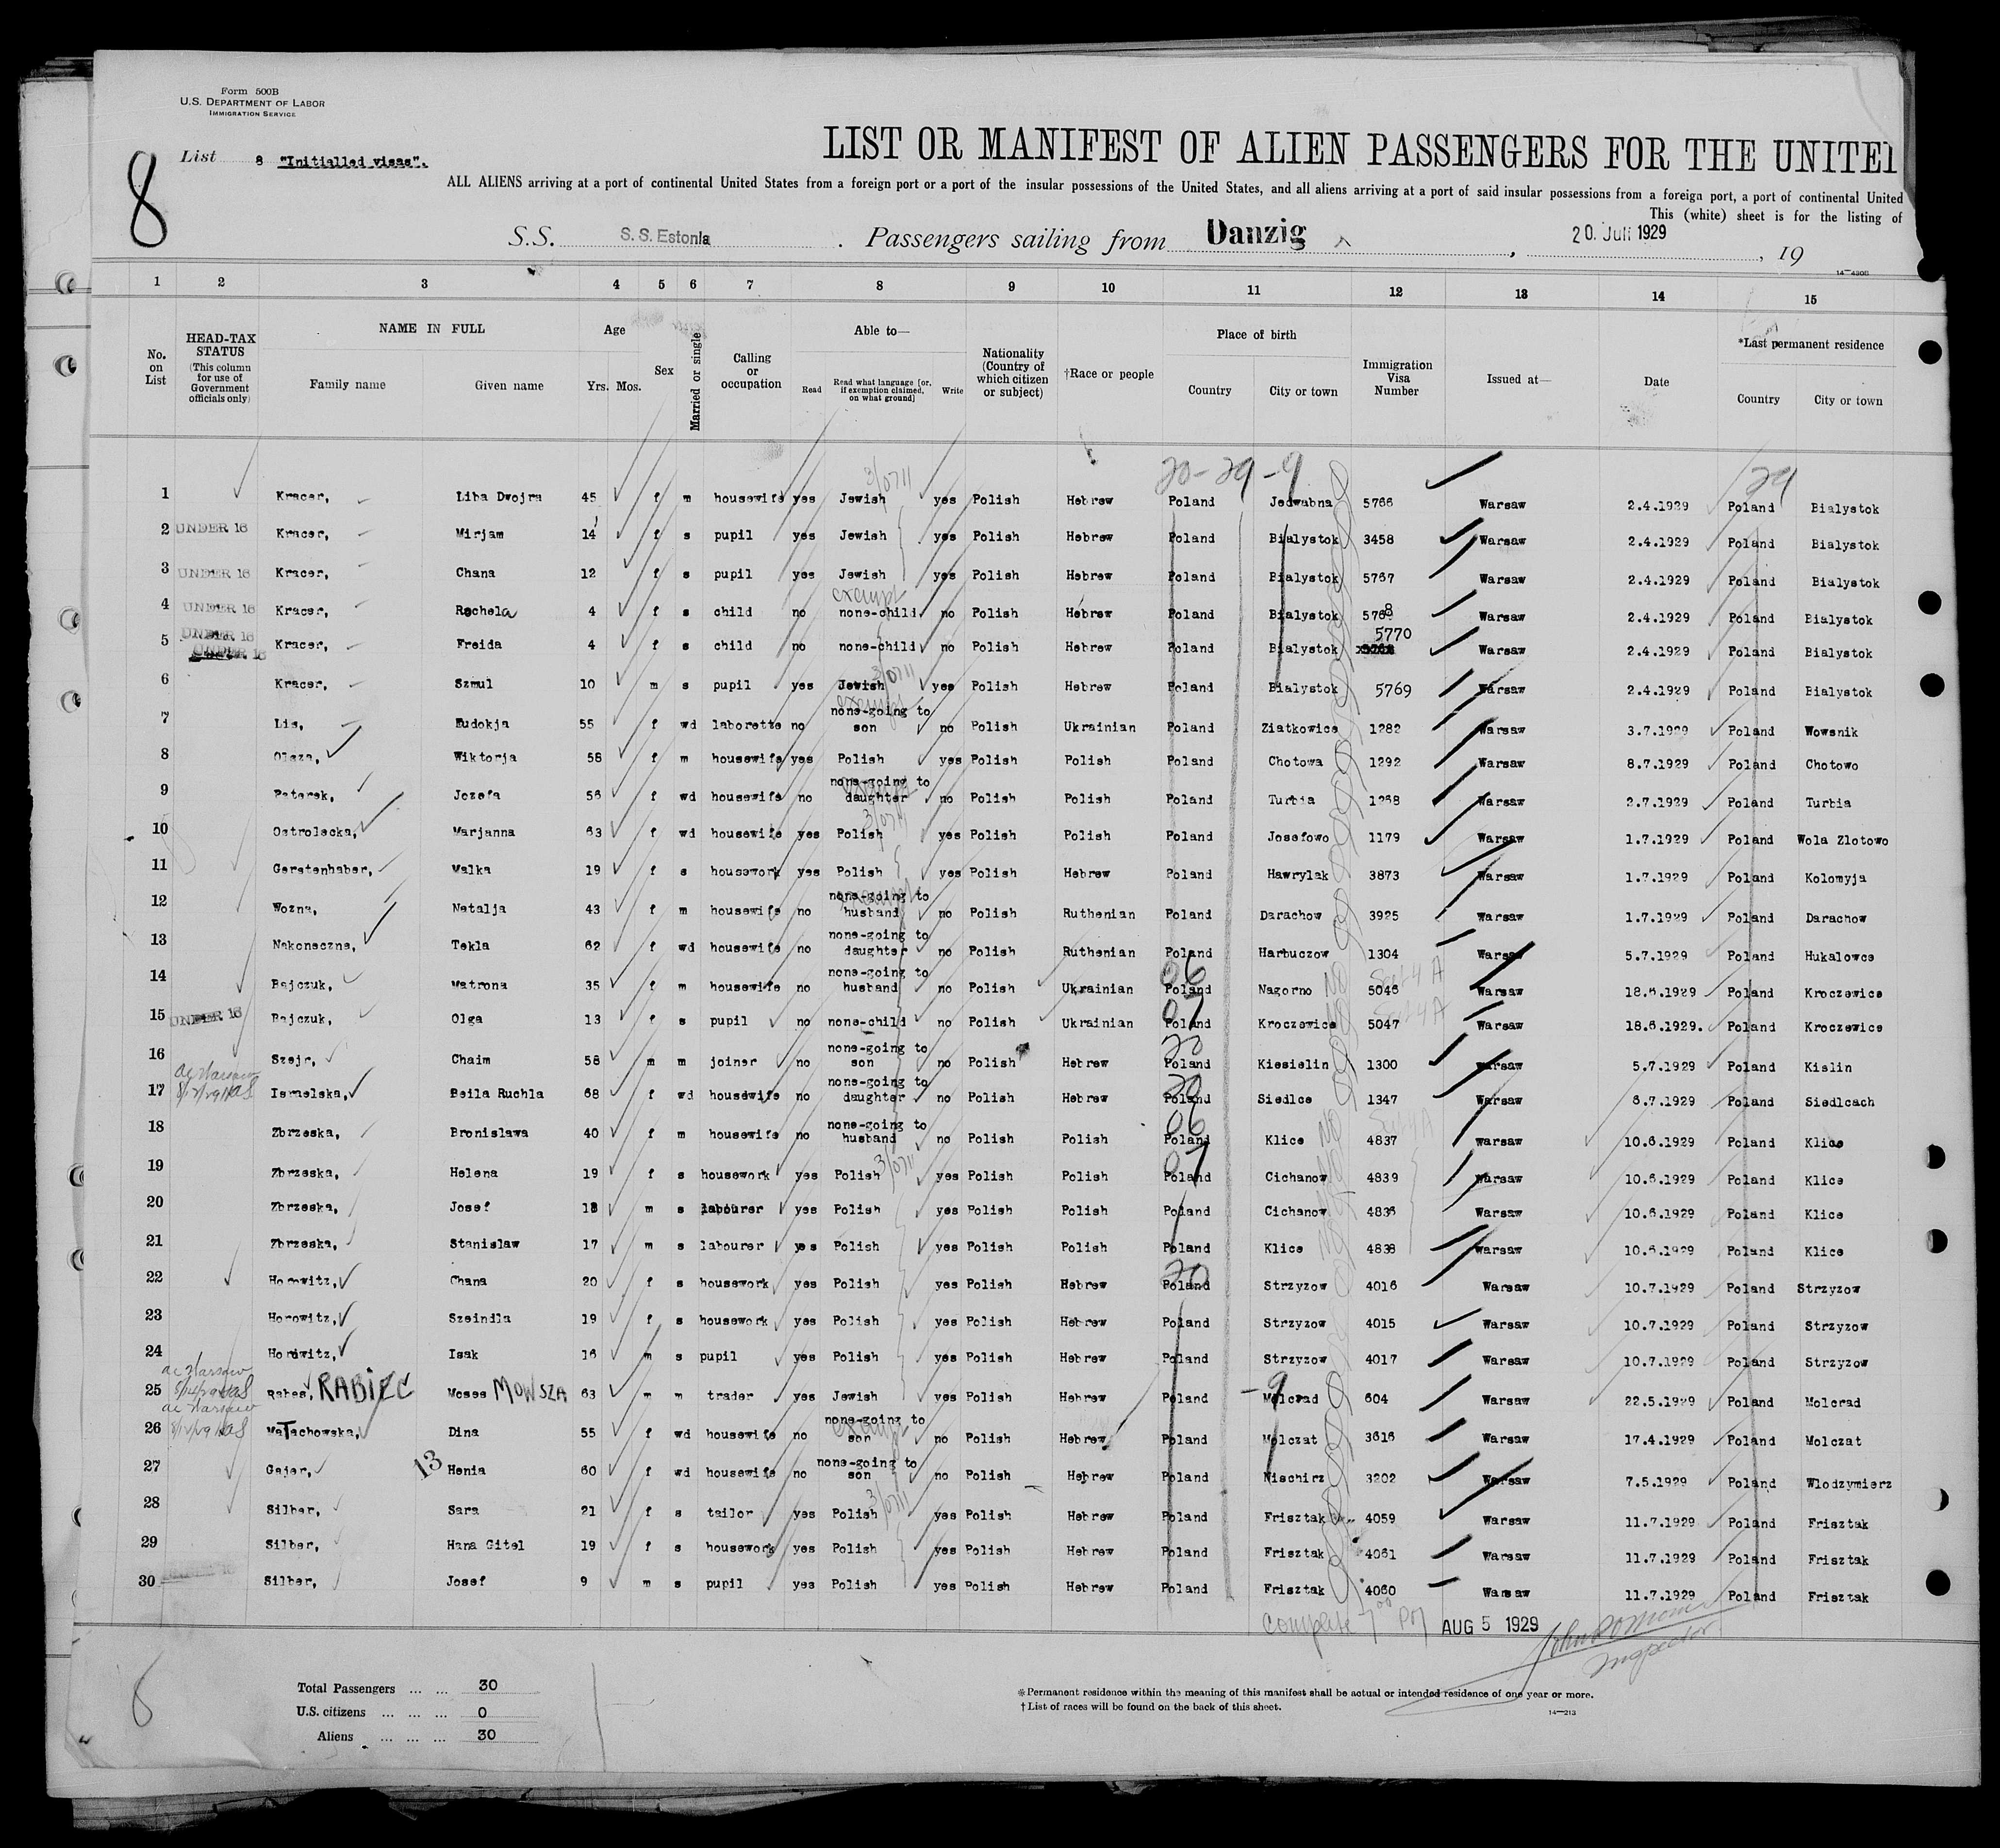 Form 500B
U.S. DEPARTMENT OF LABOR
IMMIGRATION SERVICE
8
List 8 "Initialled visas".
LIST OR MANIFEST OF ALIEN PASSENGERS FOR THE UNITE
ALL ALIENS arriving at a port of continental United States from a foreign port or a port of the insular possessions of the United States, and all aliens arriving at a port of said insular possessions from a foreign port, a port of continental United
This (white) sheet is for the listing of
S.S. S.S. Estonia . Passengers sailing from Danzig , 20. Juli 1929 , 19
14—4306
1 2 3 4 5 6 7 8 9 10 11 12 13 14 15
No. on List HEAD-TAX STATUS (This column for use of Government officials only) NAME IN FULL Family name Given name Age Yrs. Mos. Sex Married or single Calling or occupation Able to— Read Read what language [or, if exemption claimed, on what ground] Write Nationality (Country of which citizen or subject) †Race or people Place of birth Country City or town Immigration Visa Number Issued at— Date *Last permanent residence Country City or town
3/0711 20-29-9 29
1 Kracer, Liba Dwojra 45 f m housewife yes Jewish yes Polish Hebrew Poland Jedwabna 5766 Warsaw 2.4.1929 Poland Bialystok
2 UNDER 16 Kracer, Mirjam 14 f s pupil yes Jewish yes Polish Hebrew Poland Bialystok 3458 Warsaw 2.4.1929 Poland Bialystok
3 UNDER 16 Kracer, Chana 12 f s pupil yes Jewish yes Polish Hebrew Poland Bialystok 5767 Warsaw 2.4.1929 Poland Bialystok
exempt
4 UNDER 16 Kracer, Rochela 4 f s child no none-child no Polish Hebrew Poland Bialystok 5768 Warsaw 2.4.1929 Poland Bialystok
5 UNDER 16 UNDER 16 Kracer, Freida 4 f s child no none-child no Polish Hebrew Poland Bialystok 5770 Warsaw 2.4.1929 Poland Bialystok
3/0711
6 Kracer, Szmul 10 m s pupil yes Jewish yes Polish Hebrew Poland Bialystok 5769 Warsaw 2.4.1929 Poland Bialystok
exempt
7 Lis, Eudokja 55 f wd laborette no none-going to son no Polish Ukrainian Poland Ziatkowice 1282 Warsaw 3.7.1929 Poland Wowsnik
8 Olsza, Wiktorja 56 f m housewife yes Polish yes Polish Polish Poland Chotowa 1292 Warsaw 8.7.1929 Poland Chotowo
9 Paterek, Jozefa 56 f wd housewife no none-going to daughter no Polish Polish Poland Turbia 1268 Warsaw 2.7.1929 Poland Turbia
3/0711
10 Ostrolecka, Marjanna 63 f wd housewife yes Polish yes Polish Polish Poland Josefowo 1179 Warsaw 1.7.1929 Poland Wola Zlotowo
11 Gerstenhaber, Malka 19 f s housework yes Polish yes Polish Hebrew Poland Hawrylak 3873 Warsaw 1.7.1929 Poland Kolomyja
12 Wozna, Natalja 43 f m housewife no none-going to husband no Polish Ruthenian Poland Darachow 3925 Warsaw 1.7.1929 Poland Darachow
13 Nakoneczna, Tekla 62 f wd housewife no none-going to daughter no Polish Ruthenian Poland Harbuczow 1304 Warsaw 5.7.1929 Poland Hukalowce
06 Sect 4 A
14 Bajczuk, Matrona 35 f m housewife no none-going to husband no Polish Ukrainian Poland Nagorno 5046 Warsaw 18.6.1929 Poland Kroczewice
07 Sect 4 A
15 UNDER 16 Bajczuk, Olga 13 f s pupil no none-child no Polish Ukrainian Poland Kroczewice 5047 Warsaw 18.6.1929. Poland Kroczewice
20
16 Szejr, Chaim 58 m m joiner no none-going to son no Polish Hebrew Poland Kiesielin 1300 Warsaw 5.7.1929 Poland Kislin
ac Warsaw 20
17 Ismelska, Beila Ruchla 68 f wd housewife no none-going to daughter no Polish Hebrew Poland Siedlce 1347 Warsaw 6.7.1929 Poland Siedlcach
06 Sect 4 A
18 Zbrzeska, Bronislawa 40 f m housewife no none-going to husband no Polish Polish Poland Klice 4837 Warsaw 10.6.1929 Poland Klice
3/0711 07
19 Zbrzeska, Helena 19 f s housework yes Polish yes Polish Polish Poland Cichanow 4839 Warsaw 10.6.1929 Poland Klice
20 Zbrzeska, Josef 18 m s labourer yes Polish yes Polish Polish Poland Cichanow 4836 Warsaw 10.6.1929 Poland Klice
21 Zbrzeska, Stanislaw 17 m s labourer yes Polish yes Polish Polish Poland Klice 4838 Warsaw 10.6.1929 Poland Klice
20
22 Horowitz, Chana 20 f s housework yes Polish yes Polish Hebrew Poland Strzyzow 4016 Warsaw 10.7.1929 Poland Strzyzow
23 Horowitz, Szeindla 19 f s housework yes Polish yes Polish Hebrew Poland Strzyzow 4015 Warsaw 10.7.1929 Poland Strzyzow
24 Horowitz, Isak 16 m s pupil yes Polish yes Polish Hebrew Poland Strzyzow 4017 Warsaw 10.7.1929 Poland Strzyzow
ac Warsaw
25 Rabes, RABIEC Moses MOWSZA 63 m m trader yes Jewish yes Polish Hebrew Poland -9 Molcrad 604 Warsaw 22.5.1929 Poland Molcrad
ac Warsaw
26 Matachowska, Dina 55 f wd housewife no none-going to son no Polish Hebrew Poland Molczat 3616 Warsaw 17.4.1929 Poland Molczat
27 Gajer, 13 Henia 60 f wd housewife no none-going to son no Polish Hebrew Poland Nischirz 3202 Warsaw 7.5.1929 Poland Wlodzymierz
3/0711
28 Silber, Sara 21 f s tailor yes Polish yes Polish Hebrew Poland Frisztak 4059 Warsaw 11.7.1929 Poland Frisztak
29 Silber, Hana Gitel 19 f s housework yes Polish yes Polish Hebrew Poland Frisztak 4061 Warsaw 11.7.1929 Poland Frisztak
30 Silber, Josef 9 m s pupil yes Polish yes Polish Hebrew Poland Frisztak 4060 Warsaw 11.7.1929 Poland Frisztak
Complete 7 00 PM AUG 5 1929
Inspector
8
Total Passengers ... ... 30
U.S. citizens ... ... ... 0
Aliens ... ... ... 30
*Permanent residence within the meaning of this manifest shall be actual or intended residence of one year or more.
†List of races will be found on the back of this sheet.
14—213